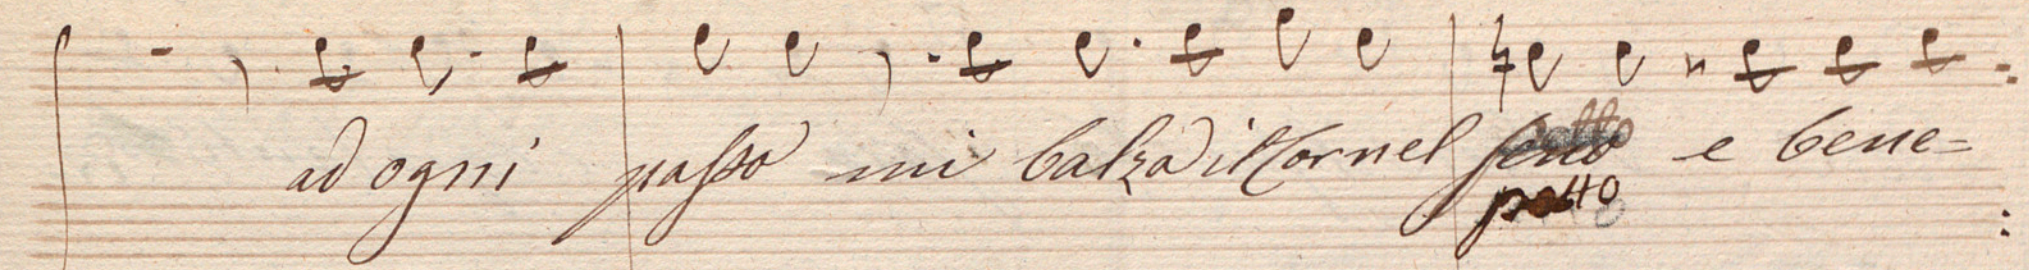 ad ogni passo mi balza il Cor nel seno e bene=
petto